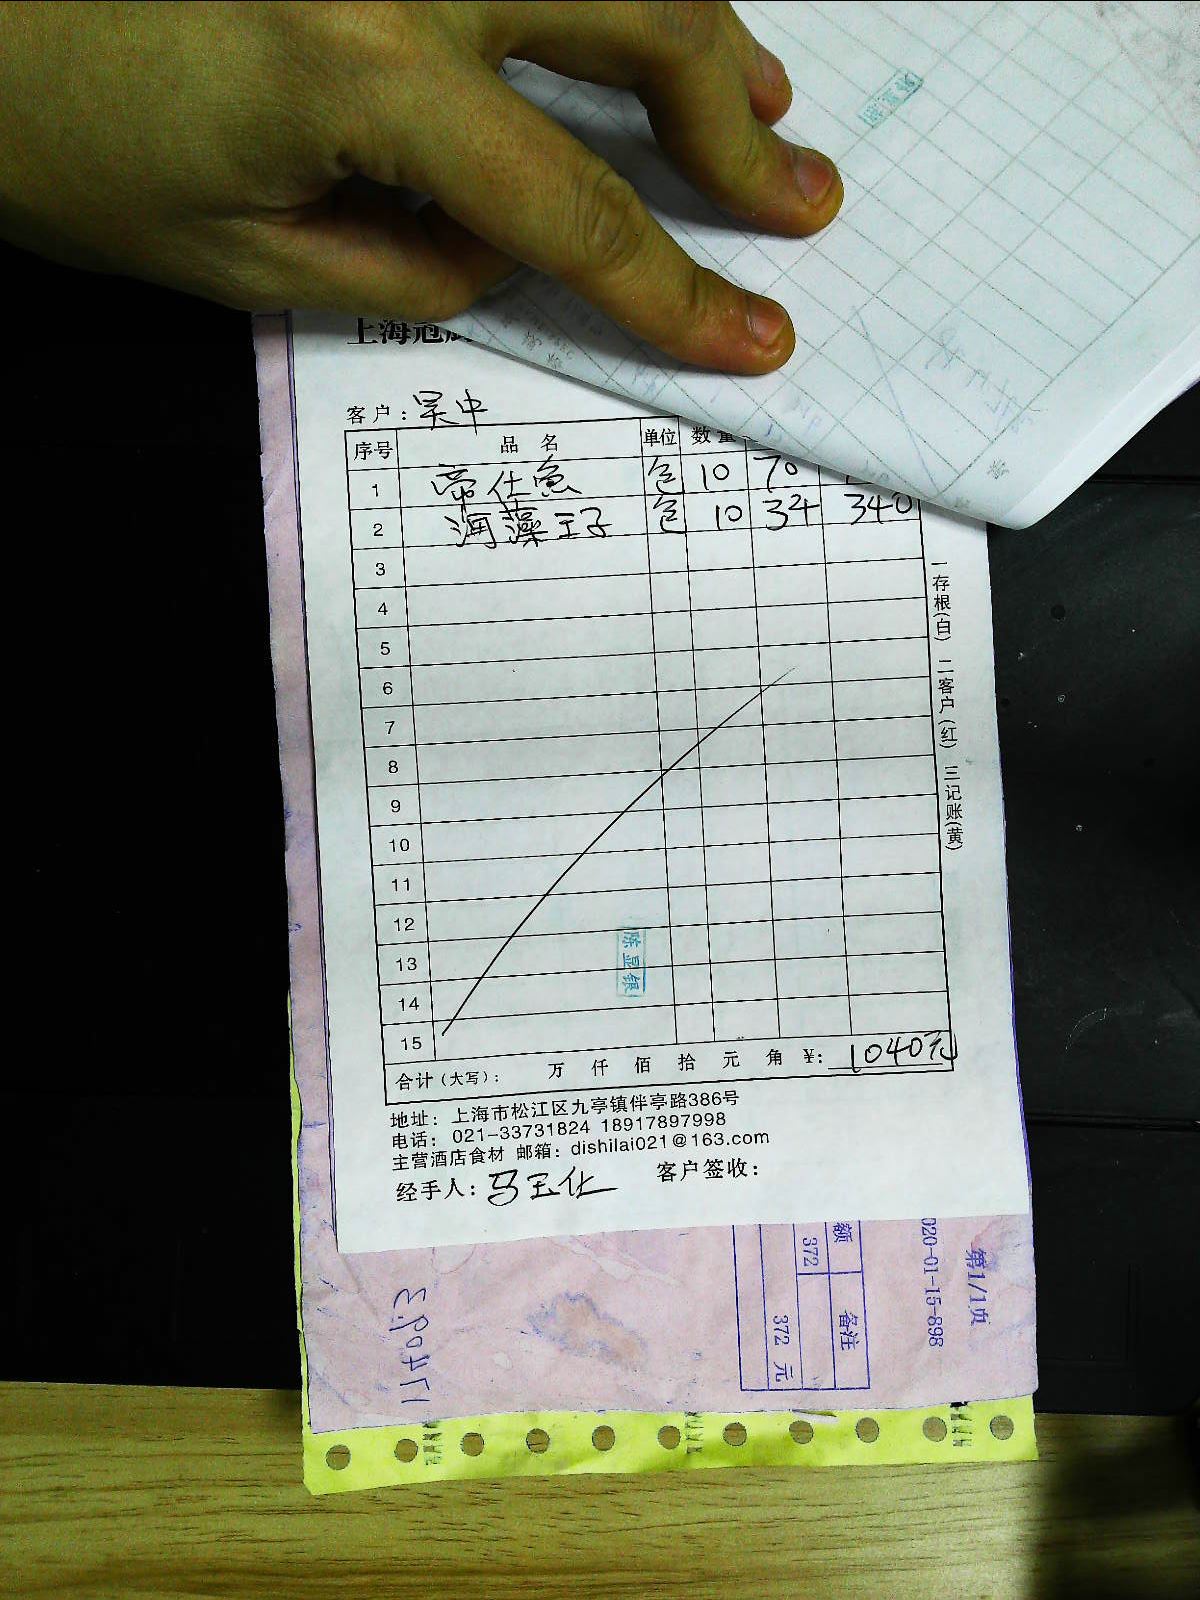 上海冠
客户：吴中
序号 品名 单位 数量
1 帝仕鱼 包 10 70
2 海藻王子 包 10 34 340
3
4
5
6
7
8
9
10
11
12
13
14
15
陈显银
合计（大写）： 万 仟 佰 拾 元 角 ¥：1040元
地址：上海市松江区九亭镇伴亭路386号
电话：021-33731824 18917897998
主营酒店食材 邮箱：dishilai021@163.com
经手人：马玉仕 客户签收：
一存根(白) 二客户(红) 三记账(黄)
第1/1页
020-01-15-898
额 备注
372
372 元